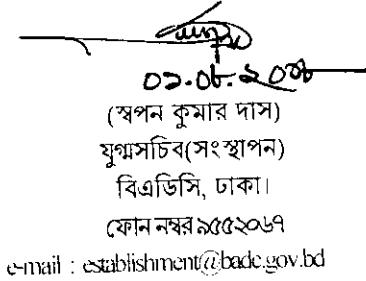 (স্বপন কুমার দাস)
যুগ্মসচিব(সংস্থাপন)
বিএডিসি, ঢাকা।
ফোন নম্বর ৯৫৫২০৬৭
e-mail : establishment@badc.gov.bd